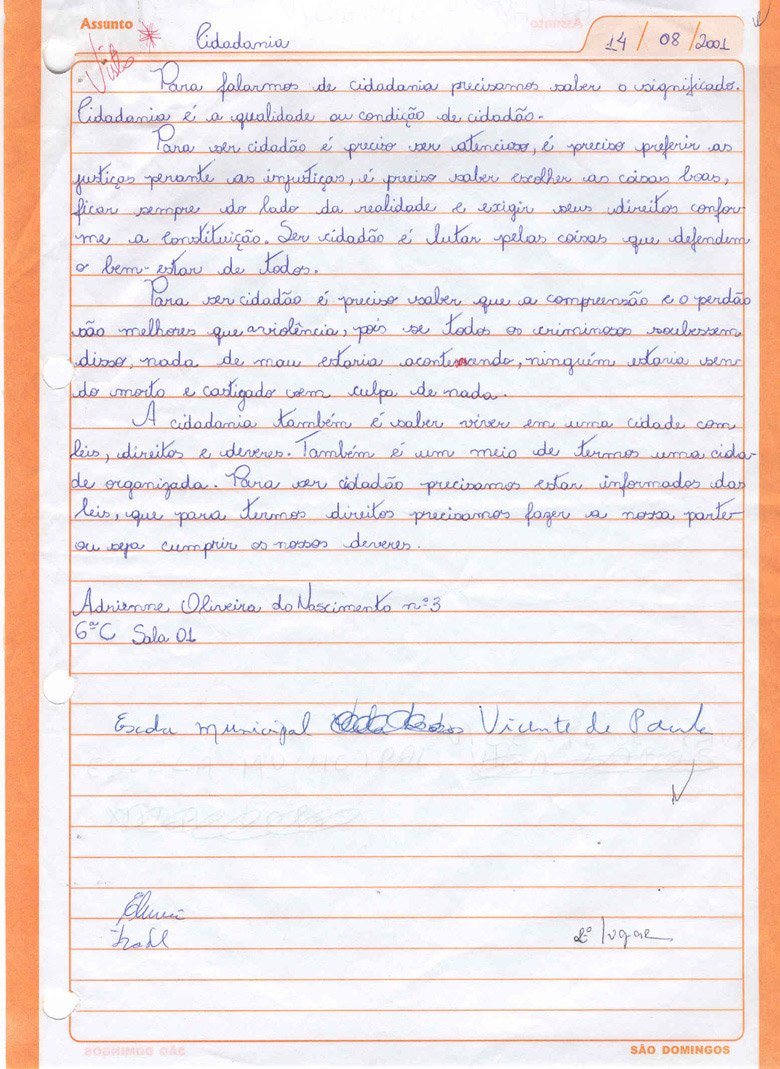 Assunto
Visto
Cidadania
14 / 08 / 2001
Para falarmos de cidadania precisamos saber o significado.
Cidadania é a qualidade ou condição de cidadão.
Para ser cidadão é preciso ser atencioso, é preciso preferir as
justiças perante as injustiças, é preciso saber escolher as coisas boas,
ficar sempre do lado da realidade e exigir seus direitos confor-
me a Constituição. Ser cidadão é lutar pelas coisas que defendem
o bem-estar de todos.
Para ser cidadão é preciso saber que a compreensão e o perdão
são melhores que a violência, pois se todos os criminosos soubessem
disso, nada de mau estaria acontecendo, ninguém estaria sen-
do morto e castigado sem culpa de nada.
A cidadania também é saber viver em uma cidade com
leis, direitos e deveres. Também é um meio de termos uma cida-
de organizada. Para ser cidadão precisamos estar informados das
leis, que para termos direitos precisamos fazer a nossa parte
ou seja cumprir os nossos deveres.
Adrienne Oliveira do Nascimento nº 3
6ª C Sala 01
Escola municipal Vicente de Paula
2º lugar
SÃO DOMINGOS